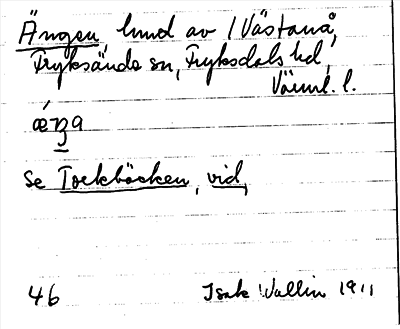 Ängen, lund av /Västanå,
Fryksände sn, Fryksdals hd,
Värml. l.
æ´ŋa
Se Torkbäcken, vid,
46 Isak Wallin 1911